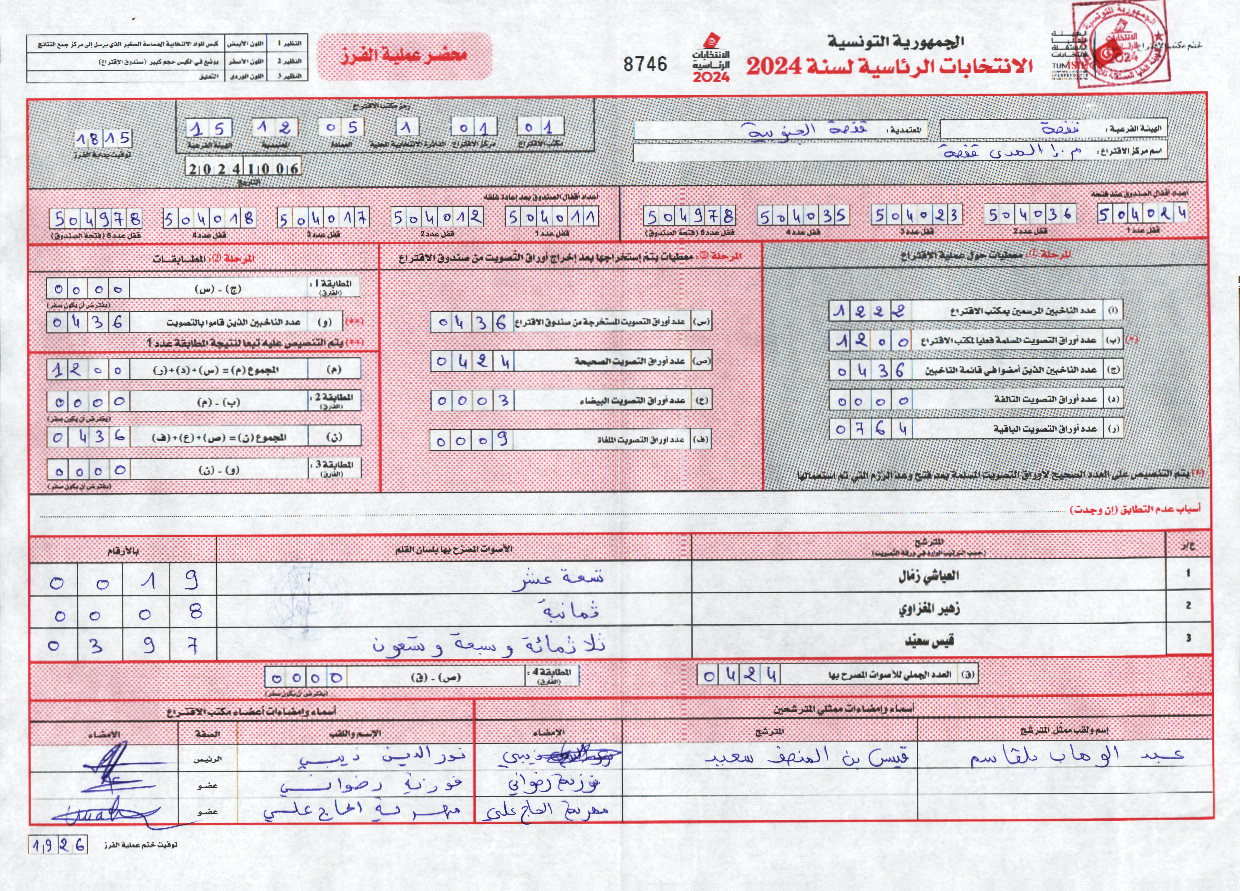 الجمهورية التونسية
الانتخابات الرئاسية لسنة 2024
الانتخابات الرئاسية 2024
8746
محضر عملية الفرز
النظير 1 اللون الأبيض كيس المواد الانتخابية الحساسة الصغير الذي يرسل إلى مركز جمع النتائج
النظير 2 اللون الأصفر يوضع في الكيس حجم كبير (صندوق الاقتراع)
النظير 3 اللون الوردي التعليق
ختم مكتب الاقتراع
الهيئة الفرعية : قفصة
المعتمدية : قفصة الجنوبية
اسم مركز الاقتراع : الهدى قفصة
رمز مكتب الاقتراع
01 01 1 05 12 15
مكتب الاقتراع مركز الاقتراع الدائرة الانتخابية المحلية العمادة المعتمدية الهيئة الفرعية
20241006
التاريخ
1815
توقيت بداية الفرز
أعداد أقفال الصندوق عند فتحه
504024 504036 504023 504035 504978
قفل عدد 1 قفل عدد 2 قفل عدد 3 قفل عدد 4 قفل عدد 5 (فتحة الصندوق)
أعداد أقفال الصندوق بعد إعادة غلقه
504011 504012 504017 504018 504978
قفل عدد 1 قفل عدد 2 قفل عدد 3 قفل عدد 4 قفل عدد 5 (فتحة الصندوق)
المرحلة 1: معطيات حول عملية الاقتراع
(ا) عدد الناخبين المرسمين بمكتب الاقتراع 1222
(*) (ب) عدد أوراق التصويت المسلمة فعليا لمكتب الاقتراع 1200
(ج) عدد الناخبين الذين أمضوا في قائمة الناخبين 0436
(د) عدد أوراق التصويت التالفة 0000
(ر) عدد أوراق التصويت الباقية 0764
(*) يتم التنصيص على العدد الصحيح لأوراق التصويت المسلمة بعد فتح وعد الرزم التي تم استعمالها
المرحلة 2: معطيات يتم إستخراجها بعد إخراج أوراق التصويت من صندوق الاقتراع
(س) عدد أوراق التصويت المستخرجة من صندوق الاقتراع 0436
(ص) عدد أوراق التصويت الصحيحة 0424
(ع) عدد أوراق التصويت البيضاء 0003
(ف) عدد أوراق التصويت الملغاة 0009
المرحلة 3: المطابقات
المطابقة 1: (الفارق) (ج) - (س) 0000
(يفترض أن يكون صفر)
(**) (و) عدد الناخبين الذين قاموا بالتصويت 0436
(**) يتم التنصيص عليه تبعا لنتيجة المطابقة عدد 1
(م) المجموع (م) = (س) + (د) + (ر) 1200
المطابقة 2: (الفارق) (ب) - (م) 0000
(يفترض أن يكون صفر)
(ن) المجموع (ن) = (ص) + (ع) + (ف) 0436
المطابقة 3: (الفارق) (و) - (ن) 0000
(يفترض أن يكون صفر)
أسباب عدم التطابق (إن وجدت)
ع/ر المترشح (حسب الترتيب الوارد في ورقة التصويت) الأصوات المصرح بها بلسان القلم بالأرقام
1 العياشي زمّال تسعة عشر 0019
2 زهير المغزاوي ثمانية 0008
3 قيس سعيّد ثلاثمائة وسبعة وتسعون 0397
(ق) العدد الجملي للأصوات المصرح بها 0424
المطابقة 4: (الفارق) (ص) - (ق) 0000
(يفترض أن يكون صفر)
أسماء وإمضاءات ممثلي المترشحين
أسماء وإمضاءات أعضاء مكتب الاقتراع
إسم ولقب ممثل المترشح المترشح الامضاء الاسم واللقب الصفة الامضاء
عبد الوهاب بلقاسم قيس بن المنصف سعيد نور الدين ذيبي الرئيس
فوزية رضواني فوزية رضواني عضو
مهرية الحاج علي مهرية الحاج علي عضو
توقيت ختم عملية الفرز 1926